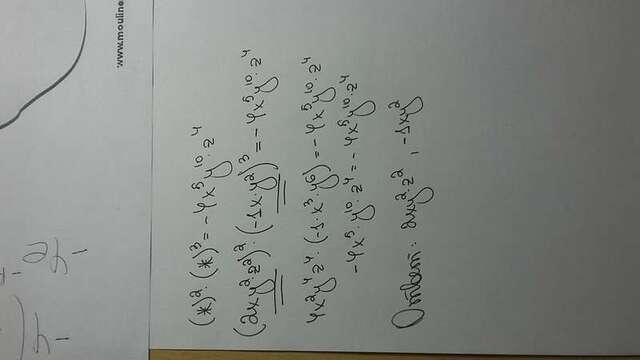 www.mouline
(*)² · (*)³ = -4x⁵y¹⁰·z⁴
(2xy²·z²)² · (-1x·y²)³ = -4x⁵y¹⁰·z⁴
4x²y⁴z⁴ · (-1·x³·y⁶) = -4x⁵y¹⁰·z⁴
-4x⁵·y¹⁰·z⁴ = -4x⁵y¹⁰·z⁴
Ответ: 2xy²·z² , -1xy²